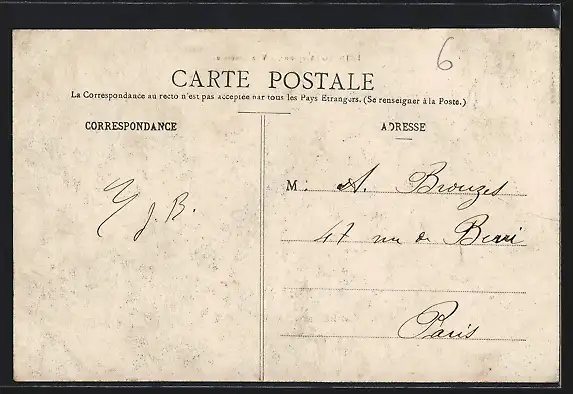 6
CARTE POSTALE
La Correspondance au recto n'est pas acceptée par tous les Pays Etrangers. (Se renseigner à la Poste.)
CORRESPONDANCE
ADRESSE
M. A. Brouzes
47 rue de Berri
J. B.
Paris